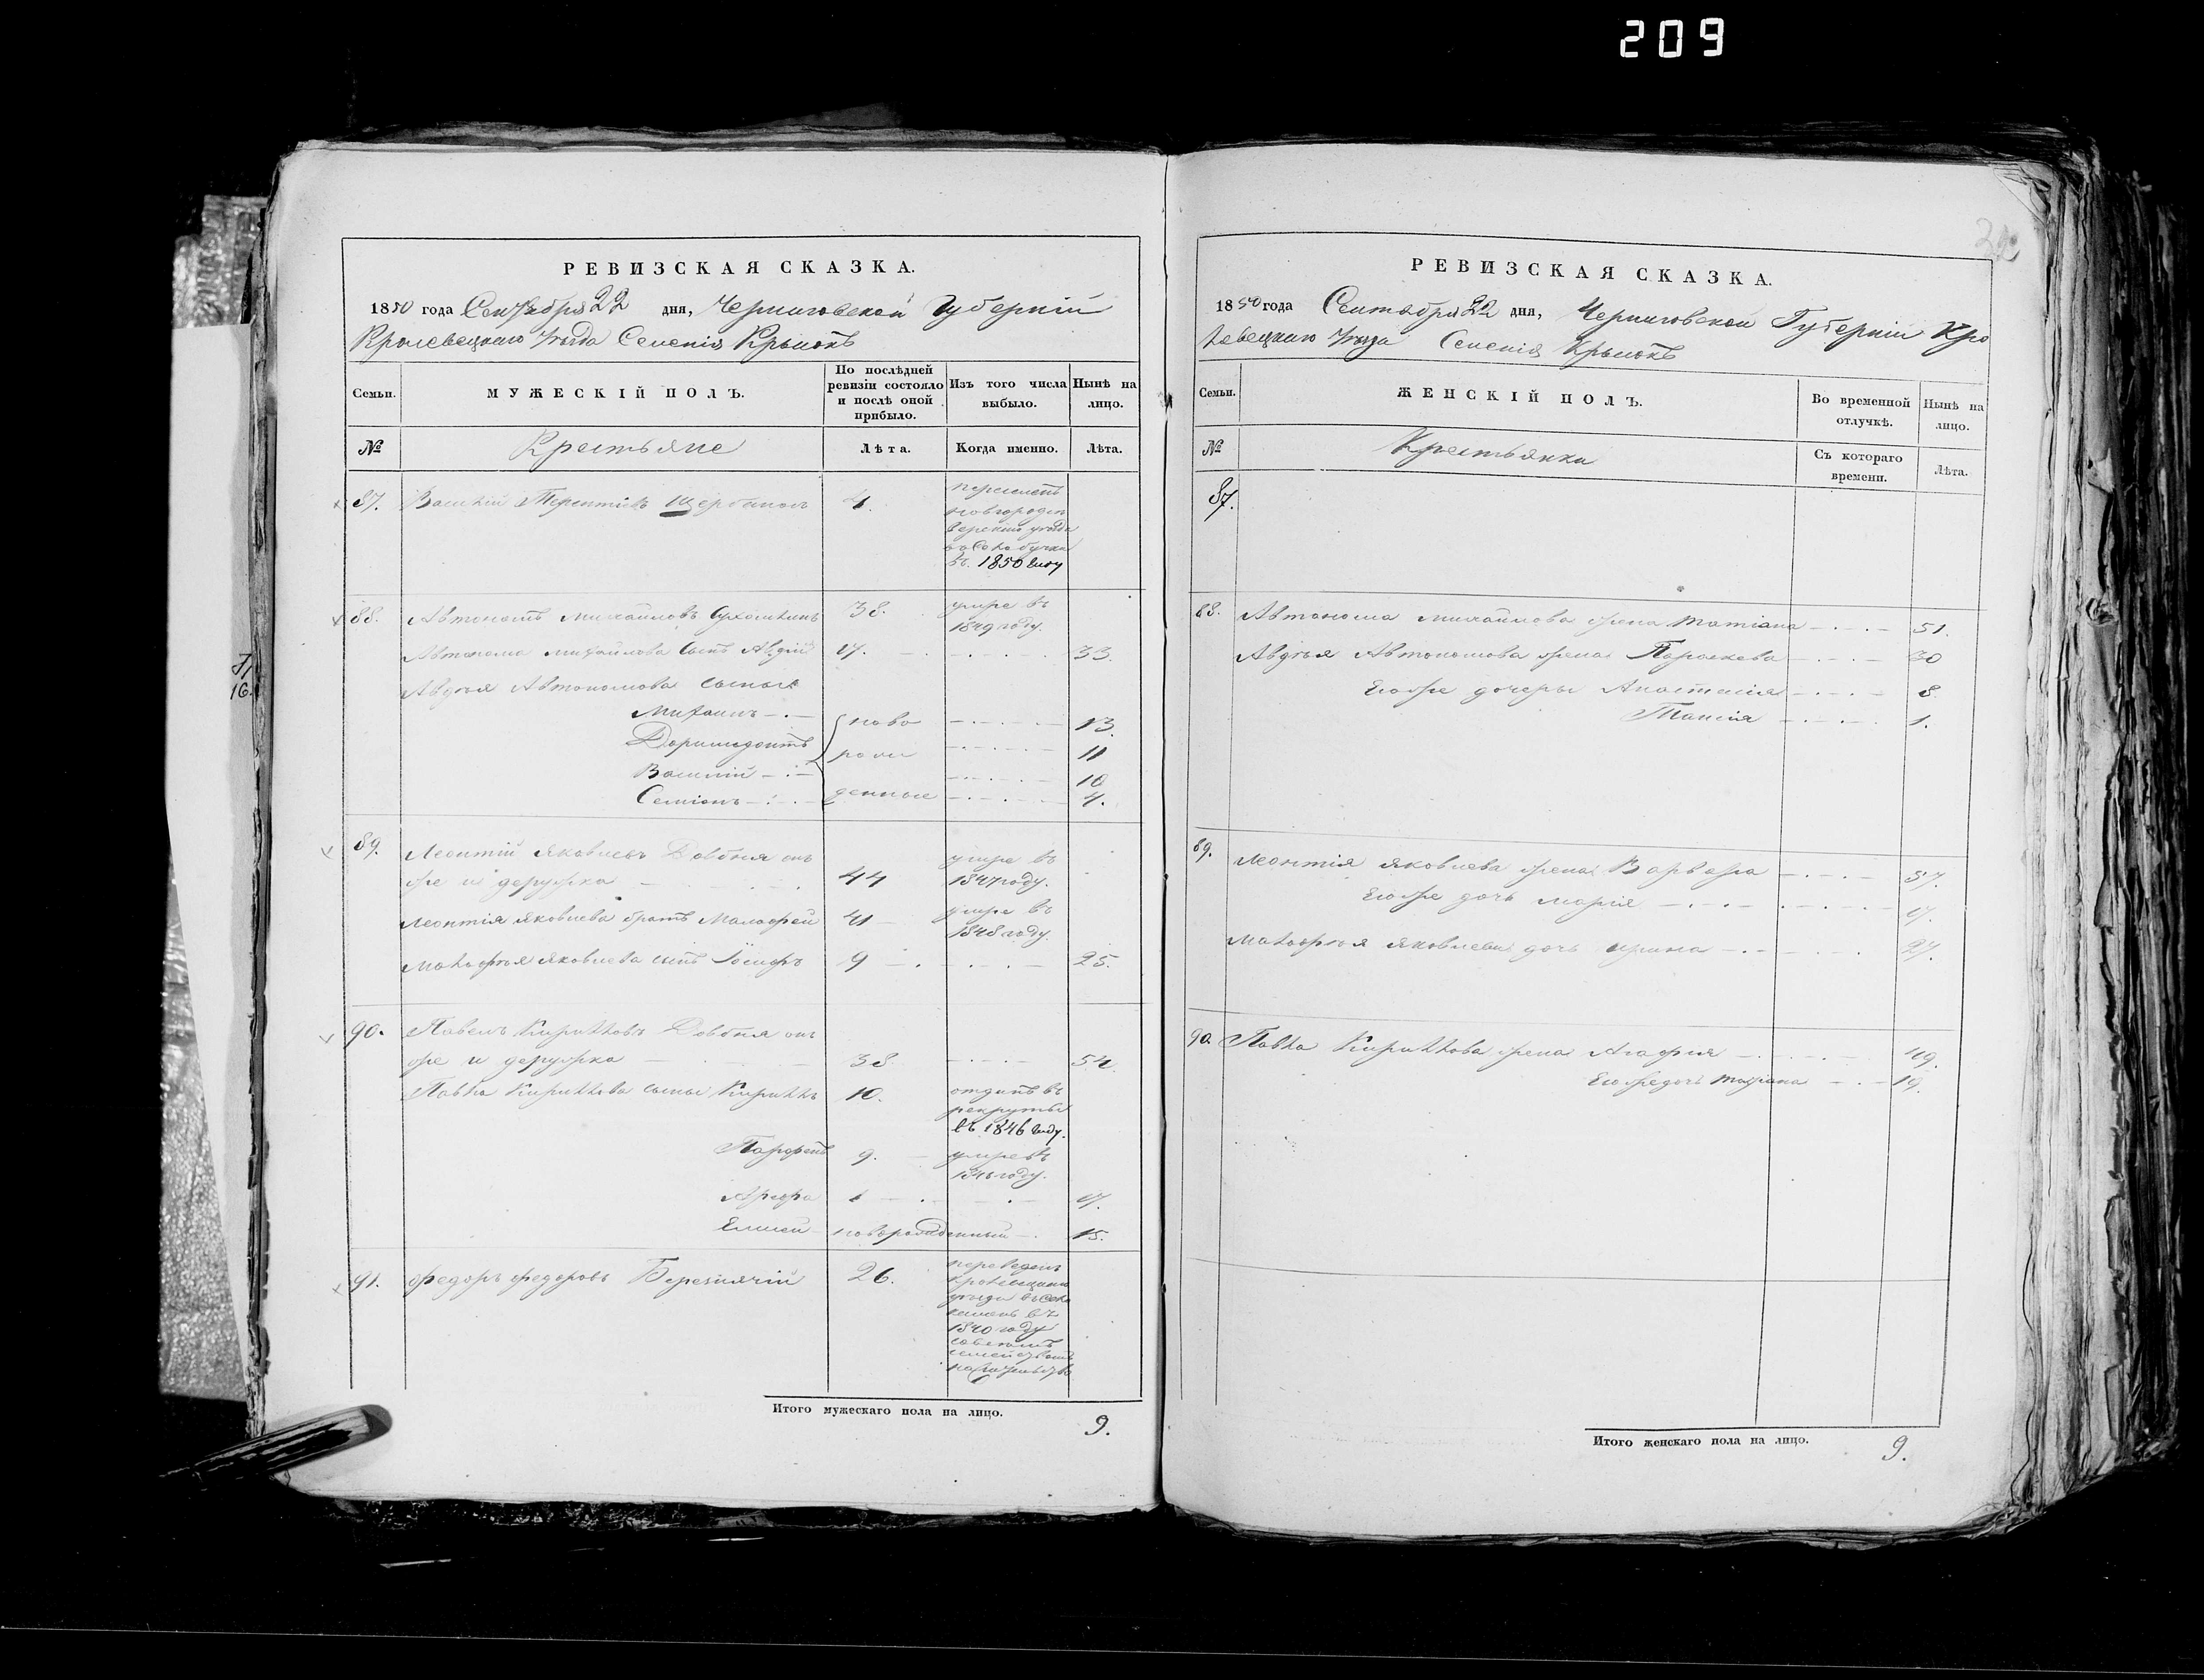 209
РЕВИЗСКАЯ СКАЗКА.
1850 года Сентября 22 дня, Черниговской Губерніи
Кролевецкаго Уезда Селенія Крысокъ
Семьи.
МУЖЕСКІЙ ПОЛЪ.
По послѣдней ревизіи состояло и послѣ оной прибыло.
Изъ того числа выбыло.
Нынѣ на лицо.
№
Крестьяне
Лѣта.
Когда именно.
Лѣта.
87. Терентіевъ 4.
уезда
въ 1850 году
88. Автономъ Михайловъ 38. умре въ
1849 году.
Автонома Михайлова сынъ Авдій 17. 33.
Авдѣя Автономова сыновья
Михаилъ ново 13.
Доримедонтъ рож 11
Василій 10
Семіонъ денные 4.
89. Леонтій Яковлевъ Довбня онъ умре въ
же и деружка 44 1847 году.
Леонтія Яковлева братъ Малофей 41 умре въ
1848 году.
Малофѣя Яковлева сынъ Іосифъ 9 25.
90. Павелъ Кириловъ Довбня онъ
же и деружка 38 54.
Павла Кирилова сыны Кирилъ 10. отданъ въ
рекруты
въ 1846 году.
Парфенъ 9. умре въ
году.
Арефа 1 17.
Елисей новорожденный 15.
91. Федоръ Федоровъ 26. переведенъ
въ
1840 году
Итого мужескаго пола на лицо. 9.
РЕВИЗСКАЯ СКАЗКА.
1850 года Сентября 22 дня, Черниговской Губерніи Кро
левецкаго Уезда Селенія Крысокъ
Семьи.
ЖЕНСКІЙ ПОЛЪ.
Во временной отлучкѣ.
Нынѣ на лицо.
№
Крестьянки
Съ котораго времени.
Лѣта.
87.
88. Автонома Михайлова жена Татіана 51.
Авдѣя Автономова жена Параскева 30
Его же дочеры Анастасія 8
Таисія 1.
89. Леонтія Яковлева жена Варвара 57.
Его же дочь Марія 17.
Малофѣя Яковлева дочь Ирина 27.
90. Павла Кирилова жена Агафия 49.
Его же дочь Татіана 19.
Итого женскаго пола на лицо. 9.